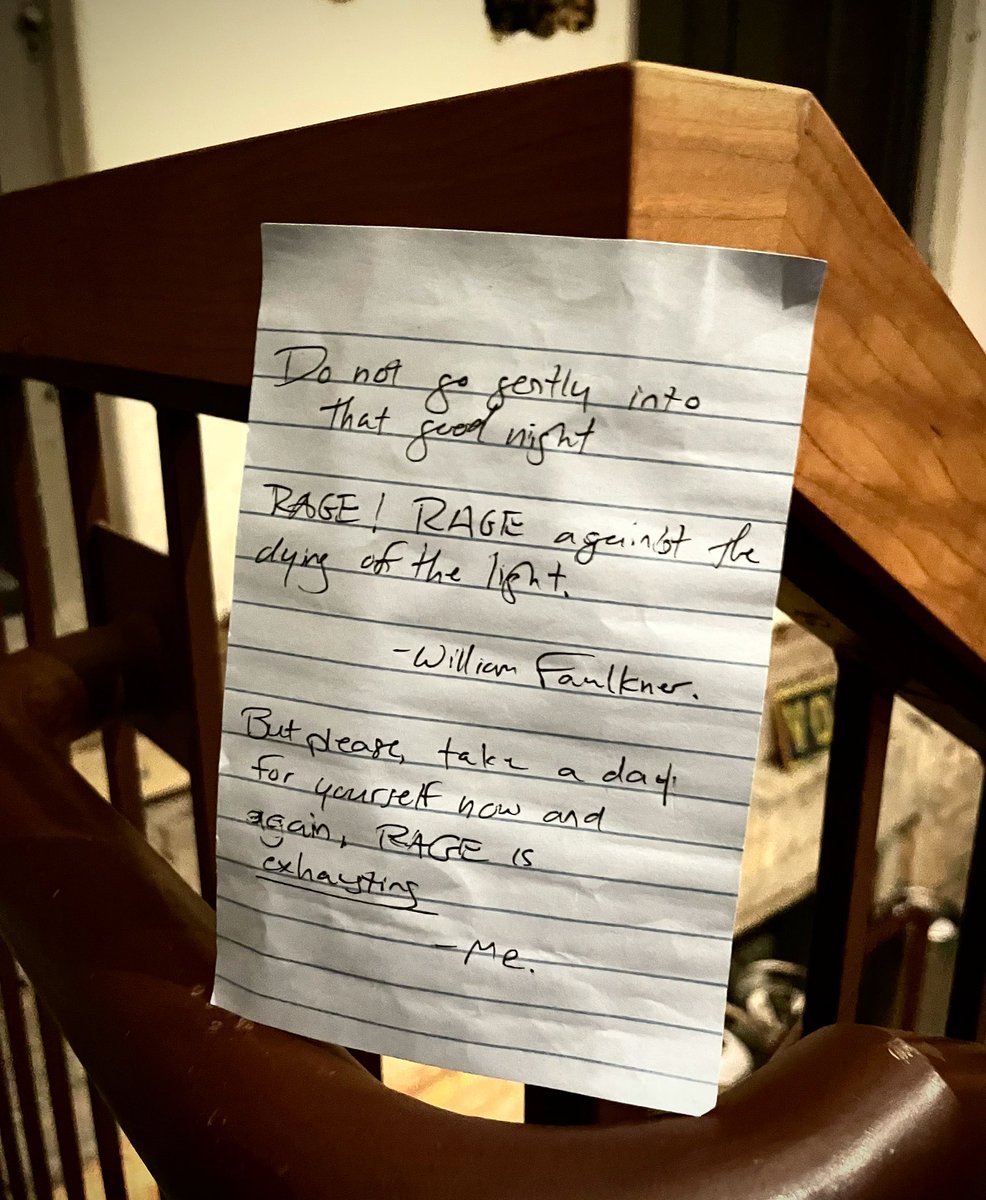 Do not go gently into
that good night
RAGE! RAGE against the
dying of the light.
-William Faulkner.
But please, take a day
for yourself now and
again, RAGE is
exhausting
-Me.
YO